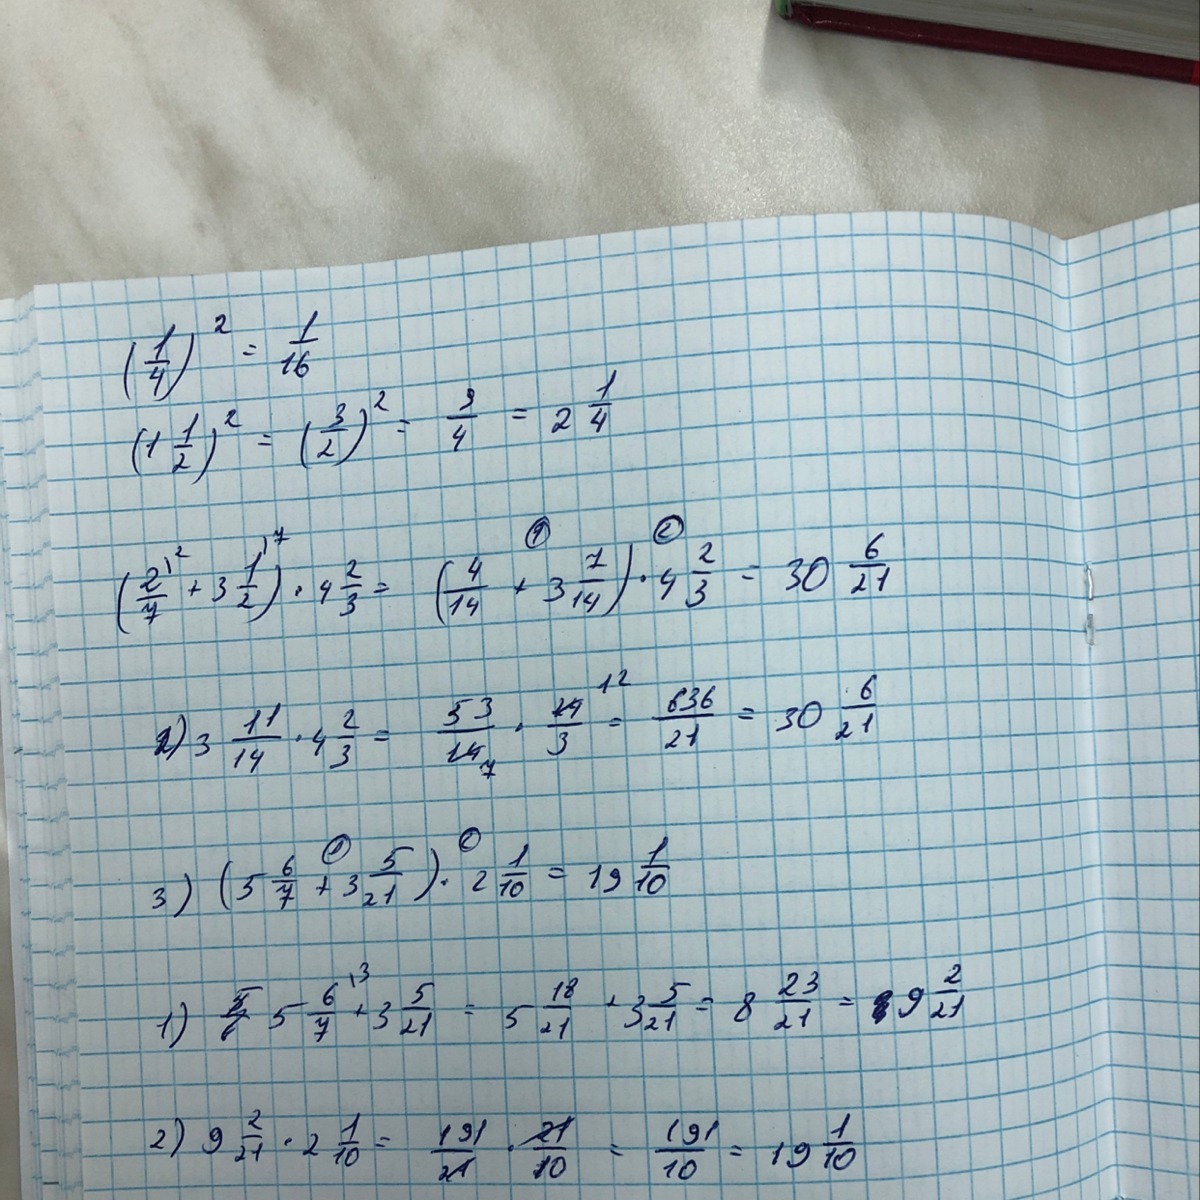 (1/4)² = 1/16
(1 1/2)² = (3/2)² = 9/4 = 2 1/4
(2/7⁾² + 3 1/2⁾⁷) · 4 2/3 = (4/14 +① 3 7/14) ·② 4 2/3 = 30 6/21
2) 3 11/14 · 4 2/3 = 53/14 7 · 14/3 12 = 636/21 = 30 6/21
3) (5 6/7 +① 3 5/21) ·② 2 1/10 = 19 1/10
1) 5 6/7⁾³ + 3 5/21 = 5 18/21 + 3 5/21 = 8 23/21 = 9 2/21
2) 9 2/21 · 2 1/10 = 191/21 · 21/10 = 191/10 = 19 1/10